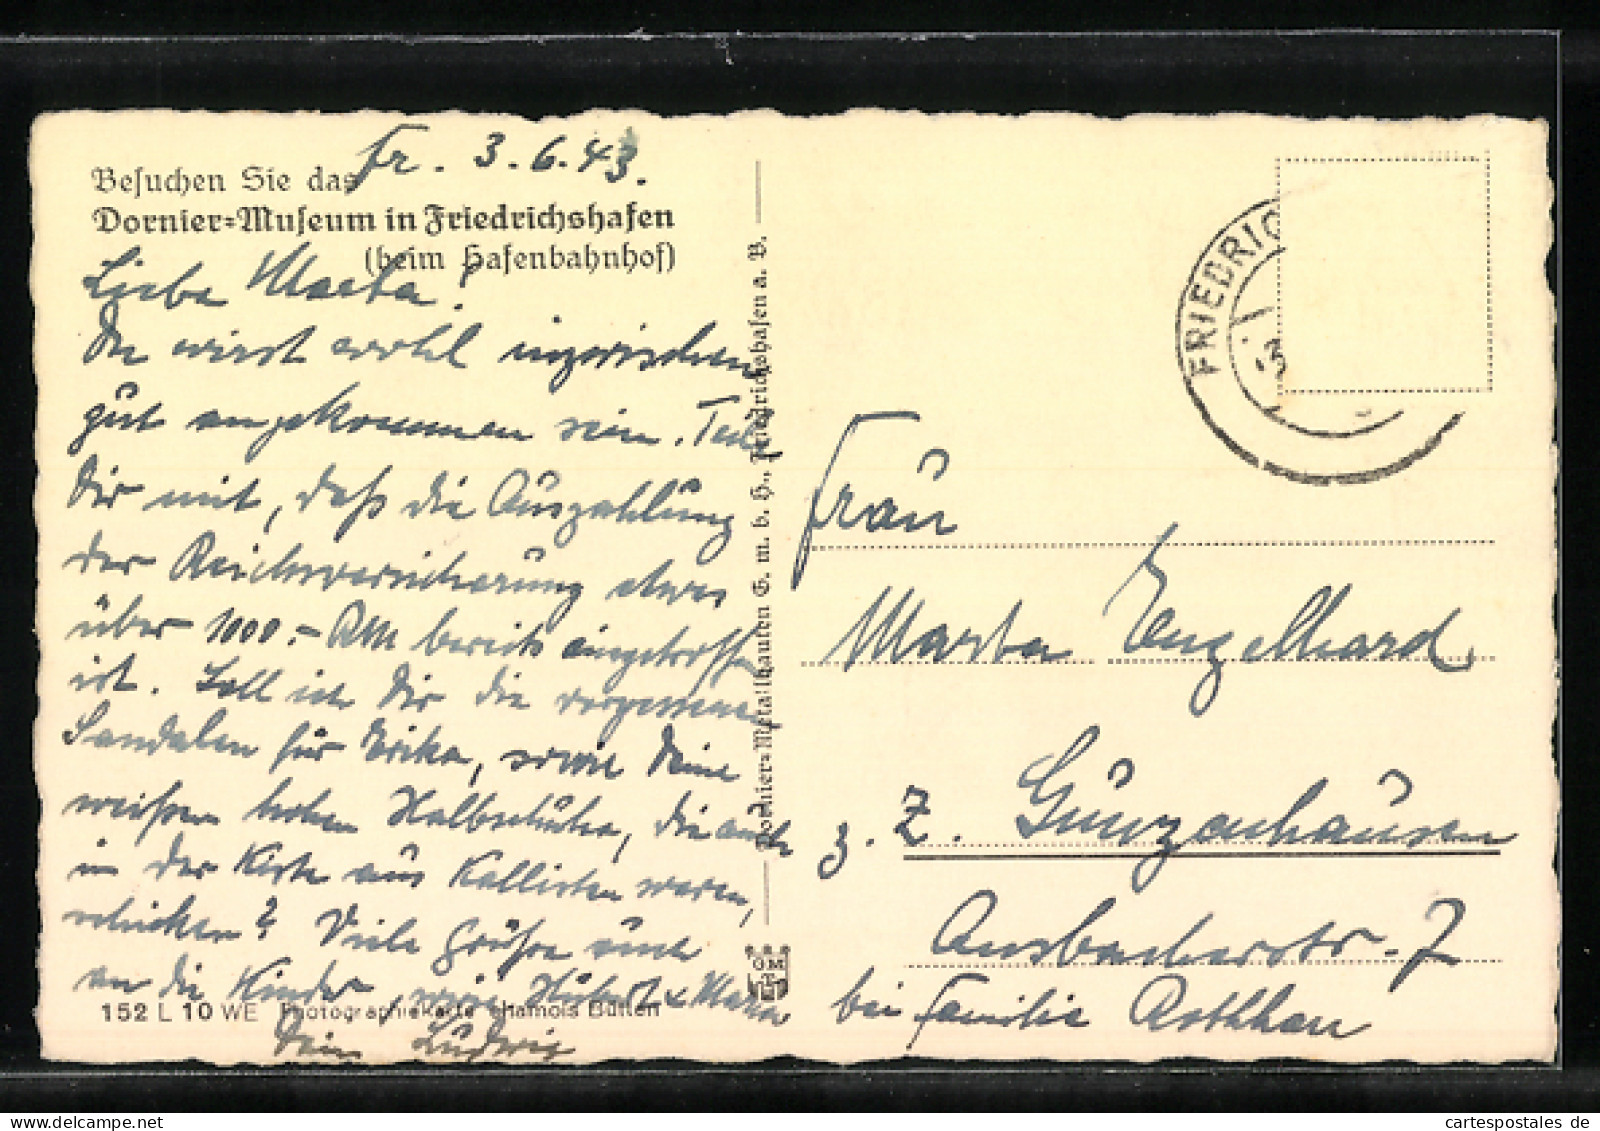 Fr. 3.6.43.
Besuchen Sie das
Dornier-Museum in Friedrichshafen
(beim Hafenbahnhof)
Liebe Marta!
Du wirst wohl inzwischen
gut angekommen sein. Teile
Dir mit, daß die Auszahlung
der Reichsversicherung etwas
über 1000.- RM bereits eingetroffen
ist. Soll ich Dir die vergessenen
Sandalen für Erika, sowie Deine
weißen hohen Halbschuhe, die auch
in der Kiste aus Kallisten waren,
schicken? Viele Grüße auch
an die Kinder, sowie Hubert & Maria
Dein Ludwig
152 L 10 WE Photographiekarte Chamois Bütten
Dornier-Metallbauten G. m. b. H., Friedrichshafen a. B.
FRIEDRIC
13
Frau
Marta Engelhard
z. Z. Gunzenhausen
Ansbacherstr. 7
bei Familie Rothhan
cartespostales.de